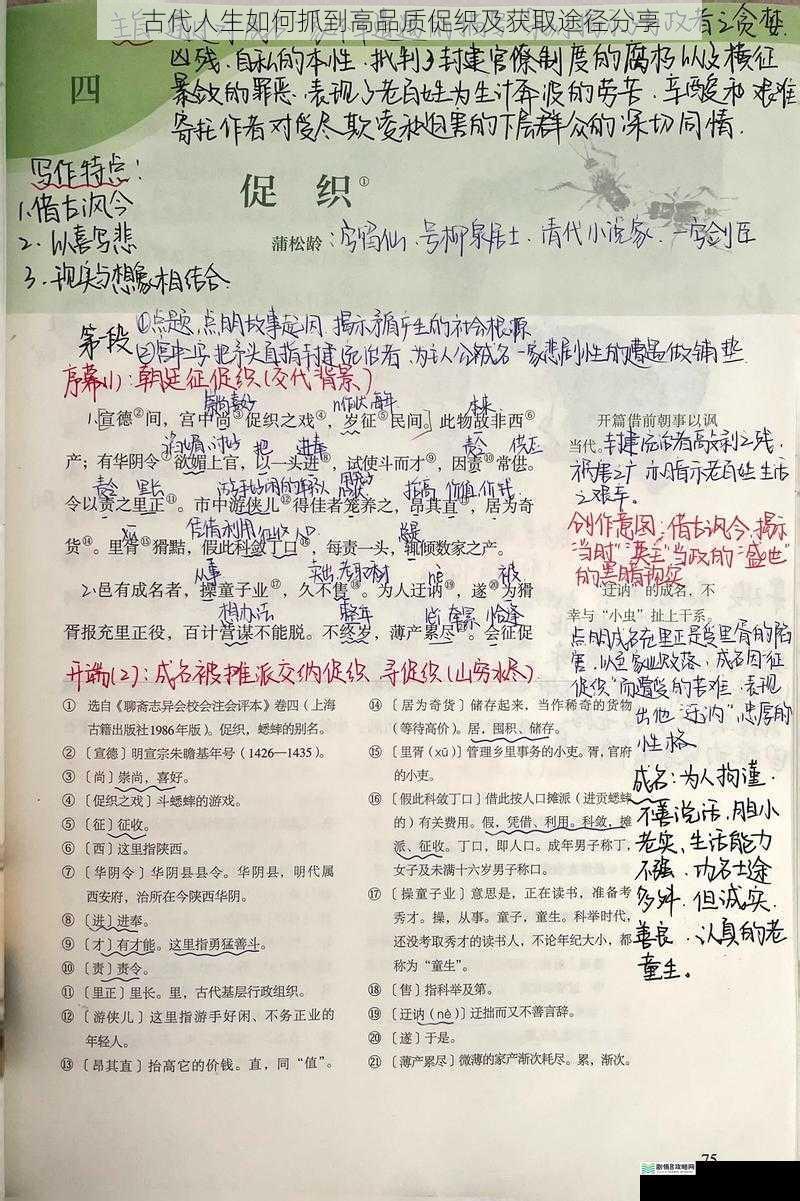 古代人生如何抓到高品质促织及获取途径分享
凶残、自私的本性，批判了封建官僚制度的腐朽以及横征
暴敛的罪恶，表现了老百姓为生计奔波的劳苦、辛酸和艰难
寄托作者对受尽欺凌和迫害的下层群众的深切同情．
四
写作特点：
促 织①
1.借古讽今
蒲松龄：字留仙、号柳泉居士．清代小说家．一字剑臣
2.以喜写悲
3.现实与想象相结合．
第一段①点题，点明故事起因，揭示矛盾产生的社会根源
序幕(1)：朝廷征促织(交代背景)
崇尚喜好
本来
1.宣德②间，宫中尚③促织之戏④，岁征⑤民间。此物故非西⑥
产；有华阴令⑦欲媚上官，以一头进⑧，试使斗而才⑨，因责⑩常供。
令以责之里正⑪。市中游侠儿⑫得佳者笼养之，昂其直⑬，居为奇
货⑭。里胥⑮猾黠，假此科敛丁口⑯，每责一头，辄倾数家之产。
从事
nè
被
2.邑有成名者，操童子业⑰，久不售⑱。为人迂讷⑲，遂⑳为猾
想办法
胥报充里正役，百计营谋不能脱。不终岁，薄产累尽㉑。会征促
开端(2)：成名被摊派交纳促织、寻促织(山穷水尽)
开篇借前朝事以讽
当代。
创作意图：借古讽今，揭示
“当时”“英主”当政的“盛世”
的黑暗现实
“迂讷”的成名，不
幸与“小虫”扯上干系。
促织”而遭受的苦难．表现
出他“迂讷”忠厚的
性格
成名：为人拘谨．
不善说话，胆小
老实、生活能力
不强．功名仕途
多舛．但诚实．
善良．认真的老
童生。
① 选自《聊斋志异会校会注会评本》卷四（上海
古籍出版社1986年版）。促织，蟋蟀的别名。
② 〔宣德〕明宣宗朱瞻基年号（1426—1435）。
③ 〔尚〕崇尚，喜好。
④ 〔促织之戏〕斗蟋蟀的游戏。
⑤ 〔征〕征收。
⑥ 〔西〕这里指陕西。
⑦ 〔华阴令〕华阴县县令。华阴县，明代属
西安府，治所在今陕西华阴。
⑧ 〔进〕进奉。
⑨ 〔才〕有才能。这里指勇猛善斗。
⑩ 〔责〕责令。
⑪ 〔里正〕里长。里，古代基层行政组织。
⑫ 〔游侠儿〕这里指游手好闲、不务正业的
年轻人。
⑬ 〔昂其直〕抬高它的价钱。直，同“值”。
⑭ 〔居为奇货〕储存起来，当作稀奇的货物
（等待高价）。居，囤积、储存。
⑮ 〔里胥（xū）〕管理乡里事务的小吏。胥，官府
的小吏。
⑯ 〔假此科敛丁口〕借此按人口摊派（进贡蟋蟀
的）有关费用。假，凭借、利用。科敛，摊
派、征收。丁口，即人口。成年男子称丁，
女子及未满十六岁男子称口。
⑰ 〔操童子业〕意思是，正在读书，准备考
秀才。操，从事。童子，童生。科举时代，
还没考取秀才的读书人，不论年纪大小，都
称为“童生”。
⑱ 〔售〕指科举及第。
⑲ 〔迂讷（nè）〕迂拙而又不善言辞。
⑳ 〔遂〕于是。
㉑ 〔薄产累尽〕微薄的家产渐次耗尽。累，渐次。
75
剧情B攻略网